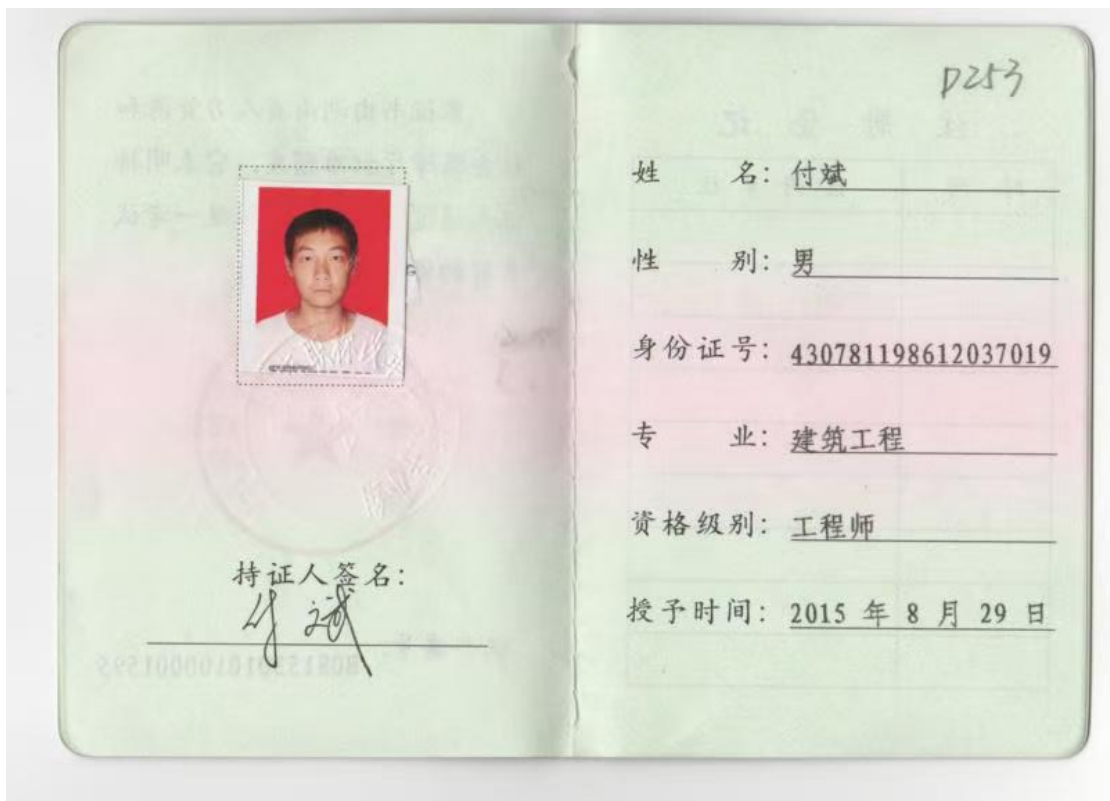 持证人签名:
付斌
D253
姓 名: 付斌
性 别: 男
身份证号: 430781198612037019
专 业: 建筑工程
资格级别: 工程师
授予时间: 2015 年 8 月 29 日